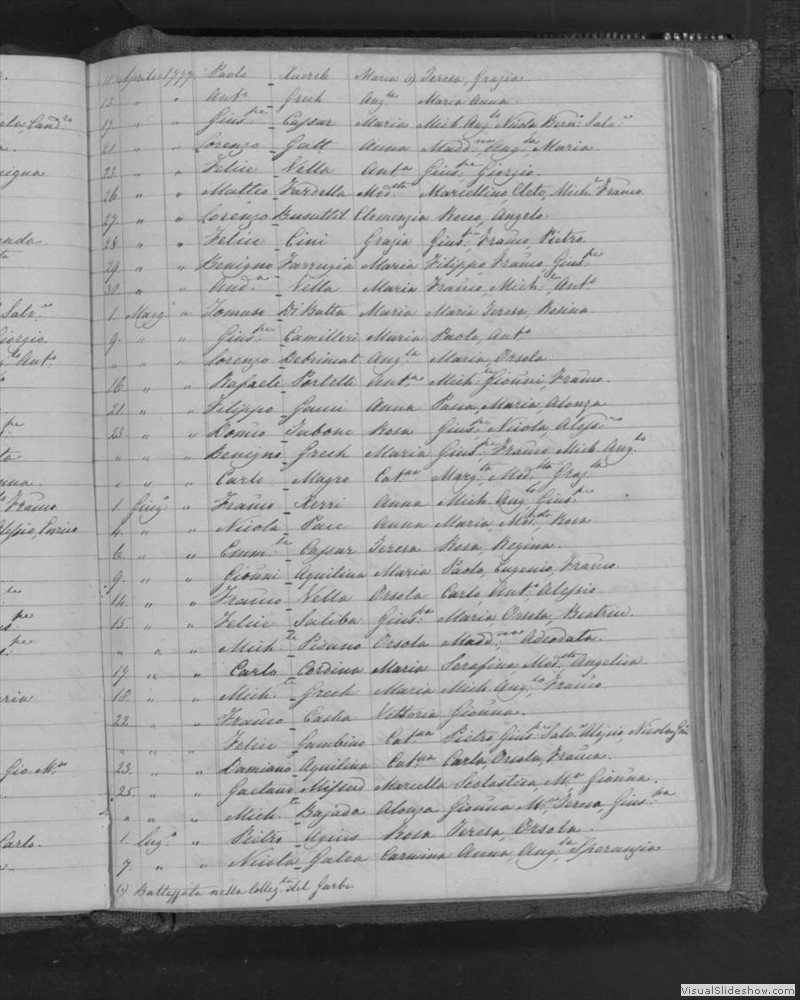 ela Cand.ra
igna
Salv.re
Giorgio
Ant.o
pe
Franco
Alessio, Enrico
pe
pe
Gio M.a
Carlo.
11. Aprile 1777 Paolo Xuereb Maria (1) Teresa, Grazia
13 " " Ant.o Grech Ang.la Maria Anna
17. " " Gius.pe Cassar Maria Mich. Ang.lo Nicola Bern.o Salv.re
21. " " Lorenzo Gatt Anna Madd.na Ang.la Maria
23. " " Felice Vella Ant.a Gius.pe Giorgio.
26 " " Matteo Fardella Mod.sta Marcellino, Cleto, Mich.le Franco
27. " " Lorenzo Busuttil Clemenzia Rosa, Angelo.
28 " " Felice Cini Grazia Gius.pe Franco, Pietro
29. " " Benigno Farrugia Maria Filippo, Franco, Gius.pe
30. " " And.a Vella Maria Franco, Mich.le Ant.o
1. Magg.o " Tomaso Di Batta Maria Maria Teresa, Rosina.
9. " " Gius.pe Camilleri Maria Paolo, Ant.o
" " " Lorenzo Debrincat Ang.la Maria, Orsola
16. " " Rafaele Portelli Ant.a Mich.le Gionni, Franco.
21. " " Filippo Gauci Anna Maria, Alonza
23. " " Romeo Tabone Rosa Gius.pe Nicola, Aless.o
" " " Benigno Grech Maria Gius.pe Franco Mich. Ang.lo
" " " Carlo Magro Cat.na Marg.ta Mod.sta Graz.lla
1. Giug.o " Franco Xerri Anna Mich. Ang.lo Gius.pe
4. " " Nicola Pace Anna Maria, Mod.sta Rosa
6. " " Emm.le Cassar Teresa Rosa, Regina.
9. " " Gionni Aquilina Maria Paolo, Eugenio, Franco.
14. " " Franco Vella Orsola Carlo, Ant.o Alessio
15. " " Felice Saliba Gius.pa Maria, Orsola, Beatrice.
" " " Mich.le Pisano Orsola Madd.na Adeodata.
17. " " Carlo Cordina Maria Serafina, Mod.sta Angelica
18. " " Mich.le Grech Maria Mich. Ang.lo Franco
22. " " Franco Casha Vittoria Gionna.
" " " Felice Gambino Cat.na Pietro, Gius.pe Salv.e Alessio, Nicola
23. " " Damiano Aquilina Cat.na Carla, Orsola, Franca.
25. " " Gaetano Mifsud Marcella Scolastica, M.a Gionna.
" " " Mich.le Bajada Alonza Gionna M.a Teresa, Gius.pa
1. Lug.o " Pietro Agius Rosa Teresa Orsola
7. " " Nicola Galea Carmina Anna, Ang.la Speranzia
(1) Battezzata nella Colleg.ta del Garbo.
VisualSlideshow.com